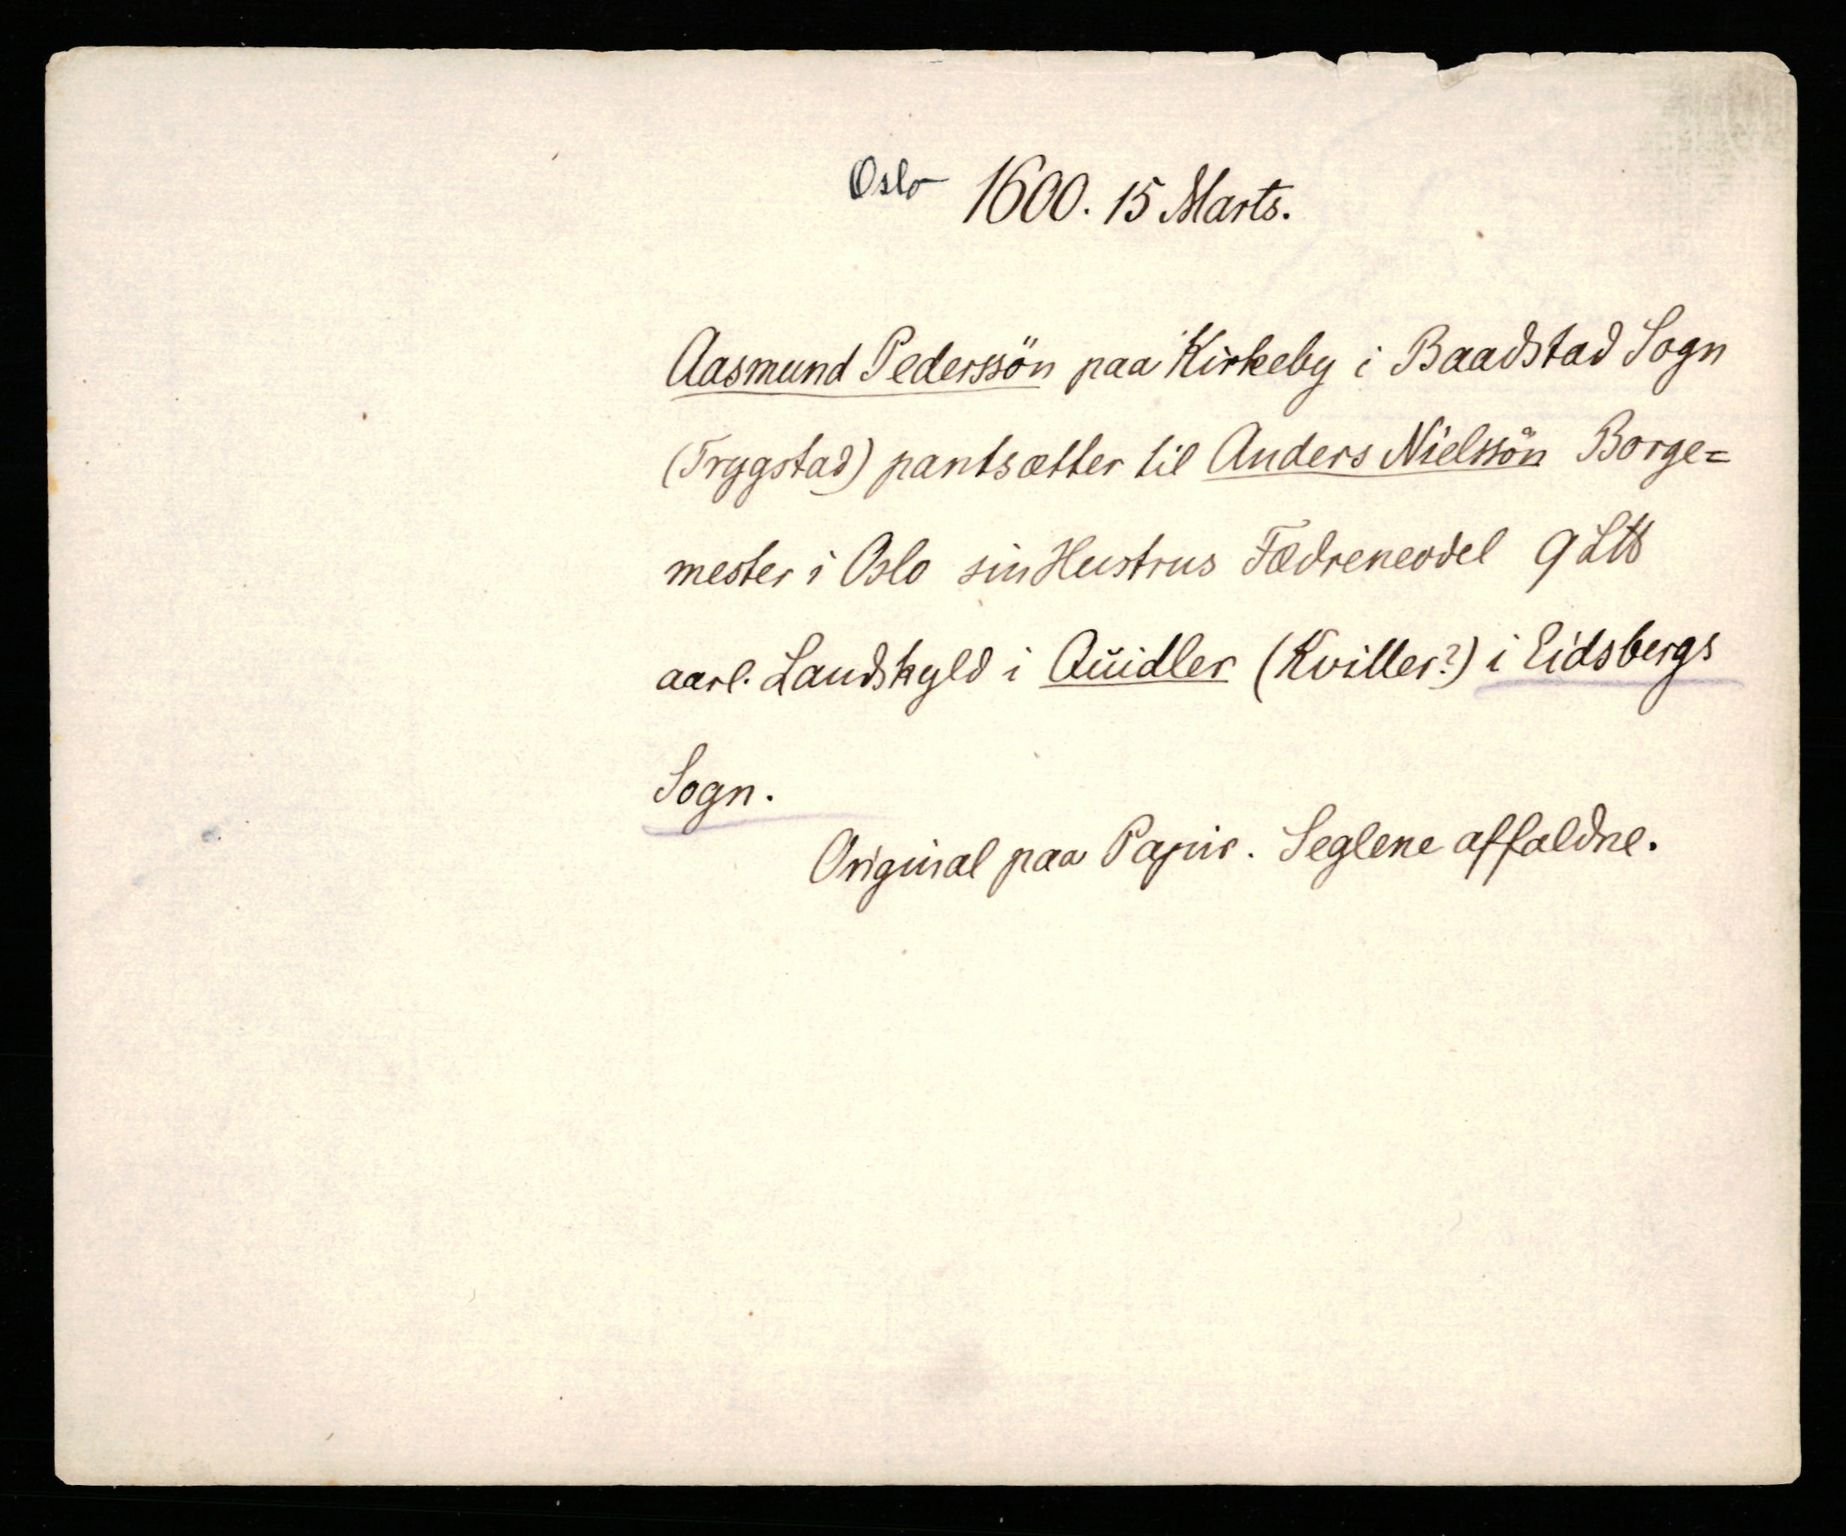 Oslo 1600. 15 Marts.
Aasmund Pederssön paa Kirkeby i Baadstad Sogn
(Trygstad) pantsætter til Anders Nielssön Borge=
mester i Oslo sin Hustrus Fædreneodel 9 L℔
aarl. Landskyld i Quidler (Kviller?) i Eidsbergs
Sogn.
Original paa Papir. Seglene affaldne.